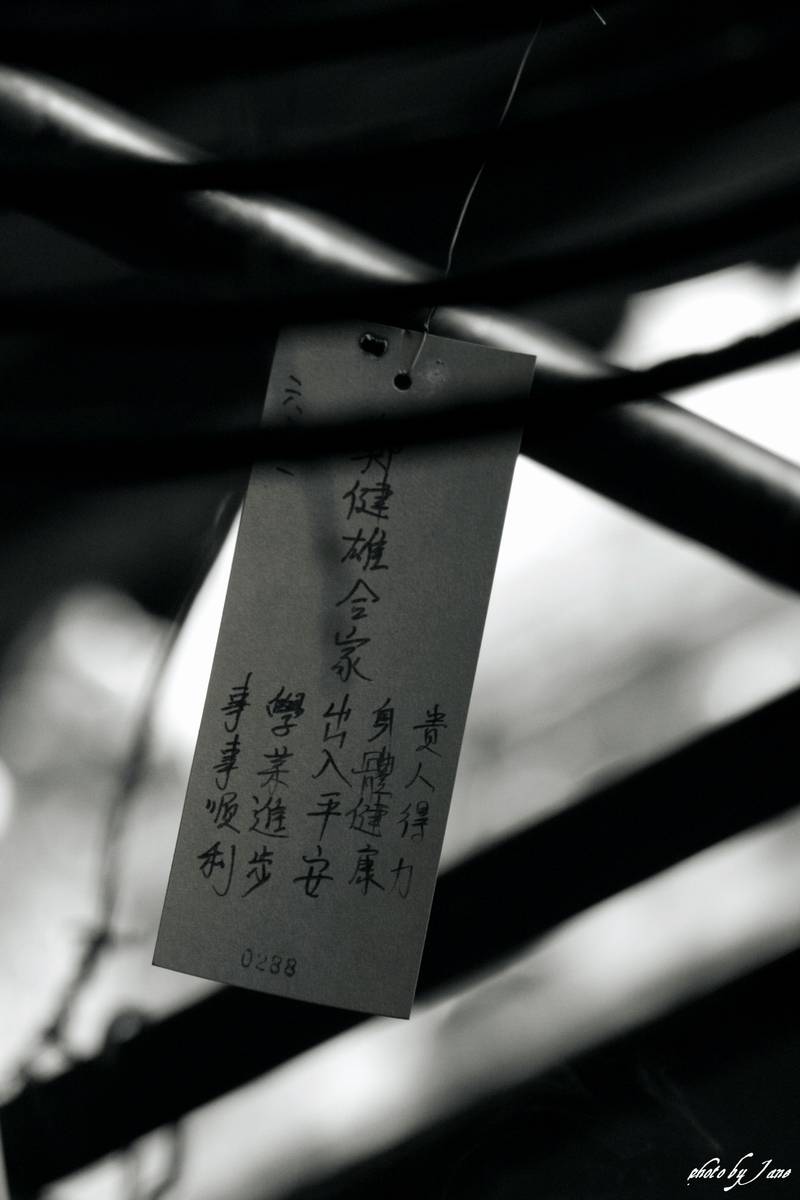 健雄合家
貴人得力
身體健康
出入平安
學業進步
事事順利
0288
photo by Jane